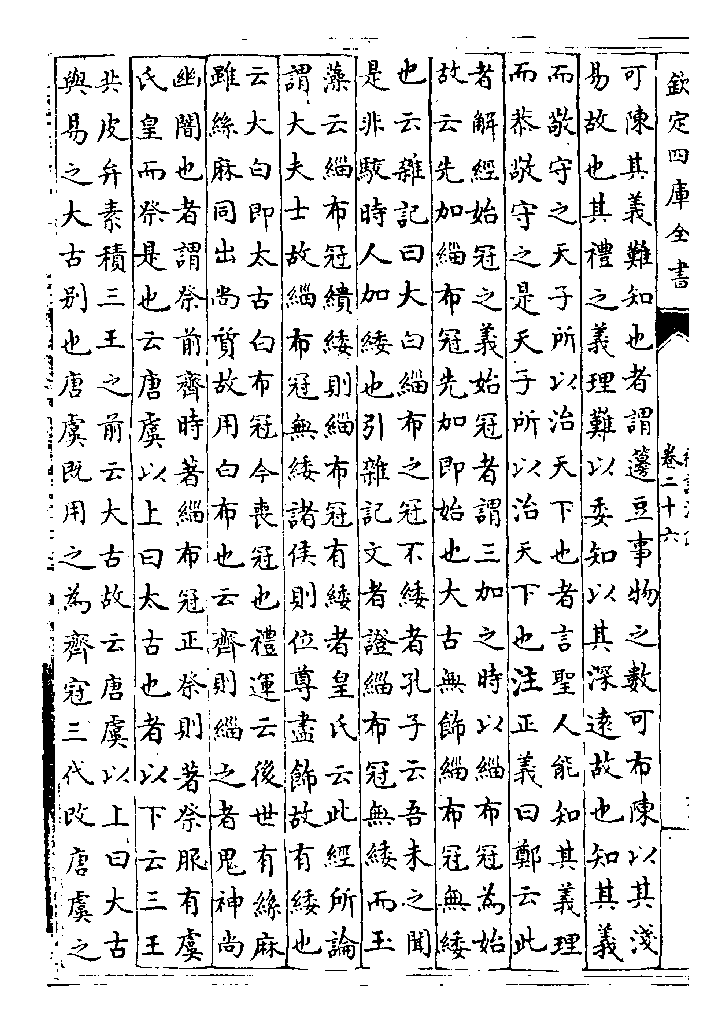 欽定四庫全書
卷二十六
可陳其義難知也者謂籩豆事物之數可布陳以其淺
易故也其禮之義理難以委知以其深遠故也知其義
而敬守之天子所以治天下也者言聖人能知其義理
而恭敬守之是天子所以治天下也注正義曰鄭云此
者解經始冠之義始冠者謂三加之時以緇布冠為始
故云先加緇布冠先加即始也大古無飾緇布冠無緌
也云雜記曰大白緇布之冠不緌者孔子云吾未之聞
是非駮時人加緌也引雜記文者證緇布冠無緌而玉
藻云緇布冠繢緌則緇布冠有緌者皇氏云此經所論
謂大夫士故緇布冠無緌諸侯則位尊盡飾故有緌也
云大白即太古白布冠今喪冠也禮運云後世有絲麻
雖絲麻同出尚質故用白布也云齊則緇之者鬼神尚
幽闇也者謂祭前齊時著緇布冠正祭則著祭服有虞
氏皇而祭是也云唐虞以上曰太古也者以下云三王
共皮弁素積三王之前云大古故云唐虞以上曰大古
與易之大古别也唐虞既用之為齊冠三代改唐虞之